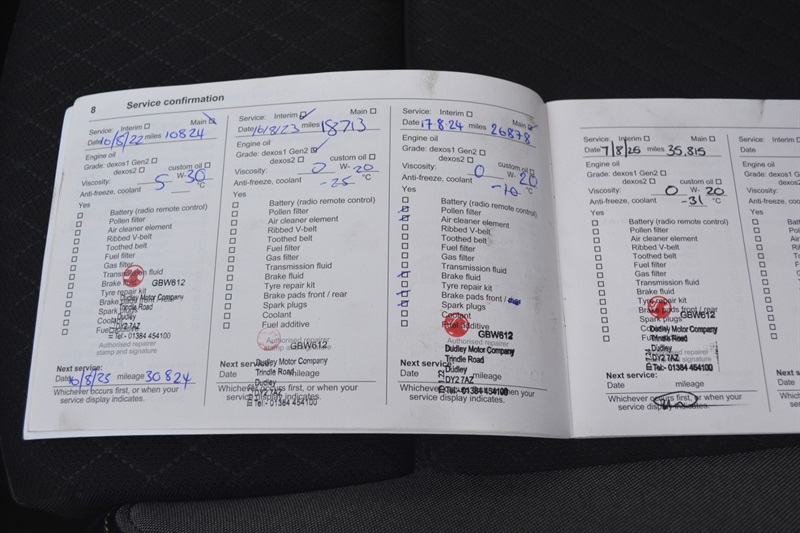 8 Service confirmation
Service: Interim Main
Date 10/8/22 miles 10824
Engine oil
Grade: dexos1 Gen2
dexos2 custom oil
Viscosity: 5 W- 30
Anti-freeze, coolant °C
Yes
Battery (radio remote control)
Pollen filter
Air cleaner element
Ribbed V-belt
Toothed belt
Fuel filter
Gas filter
Transmission fluid
Brake fluid
Tyre repair kit
Brake pads front / rear
Spark plugs
Coolant
Fuel additive
GBW612
Dudley Motor Company
Trindle Road
Dudley
DY2 7AZ
Tel:- 01384 454100
Authorised repairer
stamp and signature
Next service:
Date 10/8/23 mileage 30824
Whichever occurs first, or when your
service display indicates.
Service: Interim Main
Date 16/8/23 miles 18713
Engine oil
Grade: dexos1 Gen2
dexos2 custom oil
Viscosity: 0 W- 20
Anti-freeze, coolant -25 °C
Yes
Battery (radio remote control)
Pollen filter
Air cleaner element
Ribbed V-belt
Toothed belt
Fuel filter
Gas filter
Transmission fluid
Brake fluid
Tyre repair kit
Brake pads front / rear
Spark plugs
Coolant
Fuel additive
Authorised repairer
stamp and signature
GBW612
Dudley Motor Company
Trindle Road
Dudley
DY2 7AZ
Tel:- 01384 454100
Next service:
Date mileage
Whichever occurs first, or when your
service display indicates.
Service: Interim Main
Date 17.8.24 miles 26878
Engine oil
Grade: dexos1 Gen2
dexos2 custom oil
Viscosity: 0 W- 20
Anti-freeze, coolant -10 °C
Yes
Battery (radio remote control)
Pollen filter
Air cleaner element
Ribbed V-belt
Toothed belt
Fuel filter
Gas filter
Transmission fluid
Brake fluid
Tyre repair kit
Brake pads front /
Spark plugs
Coolant
Fuel additive
GBW612
Dudley Motor Company
Trindle Road
Dudley
DY2 7AZ
Tel:- 01384 454100
Next service:
Date mileage
Whichever occurs first, or when your
service display indicates.
Service: Interim Main
Date 7/8/25 miles 35,815
Engine oil
Grade: dexos1 Gen2
dexos2 custom oil
Viscosity: 0 W- 20
Anti-freeze, coolant -31 °C
Yes
Battery (radio remote control)
Pollen filter
Air cleaner element
Ribbed V-belt
Toothed belt
Fuel filter
Gas filter
Transmission fluid
Brake fluid
Tyre repair kit
Brake pads front / rear
Spark plugs
Coolant
Fuel additive
GBW612
Dudley Motor Company
Trindle Road
Dudley
DY2 7AZ
Tel:- 01384 454100
Authorised repairer
stamp and signature
Next service:
Date mileage
Whichever occurs first, or when your
service display indicates.
Service:
Date
Engine oil
Grade: dexos1
Viscosity:
Anti-freeze, cool
Yes